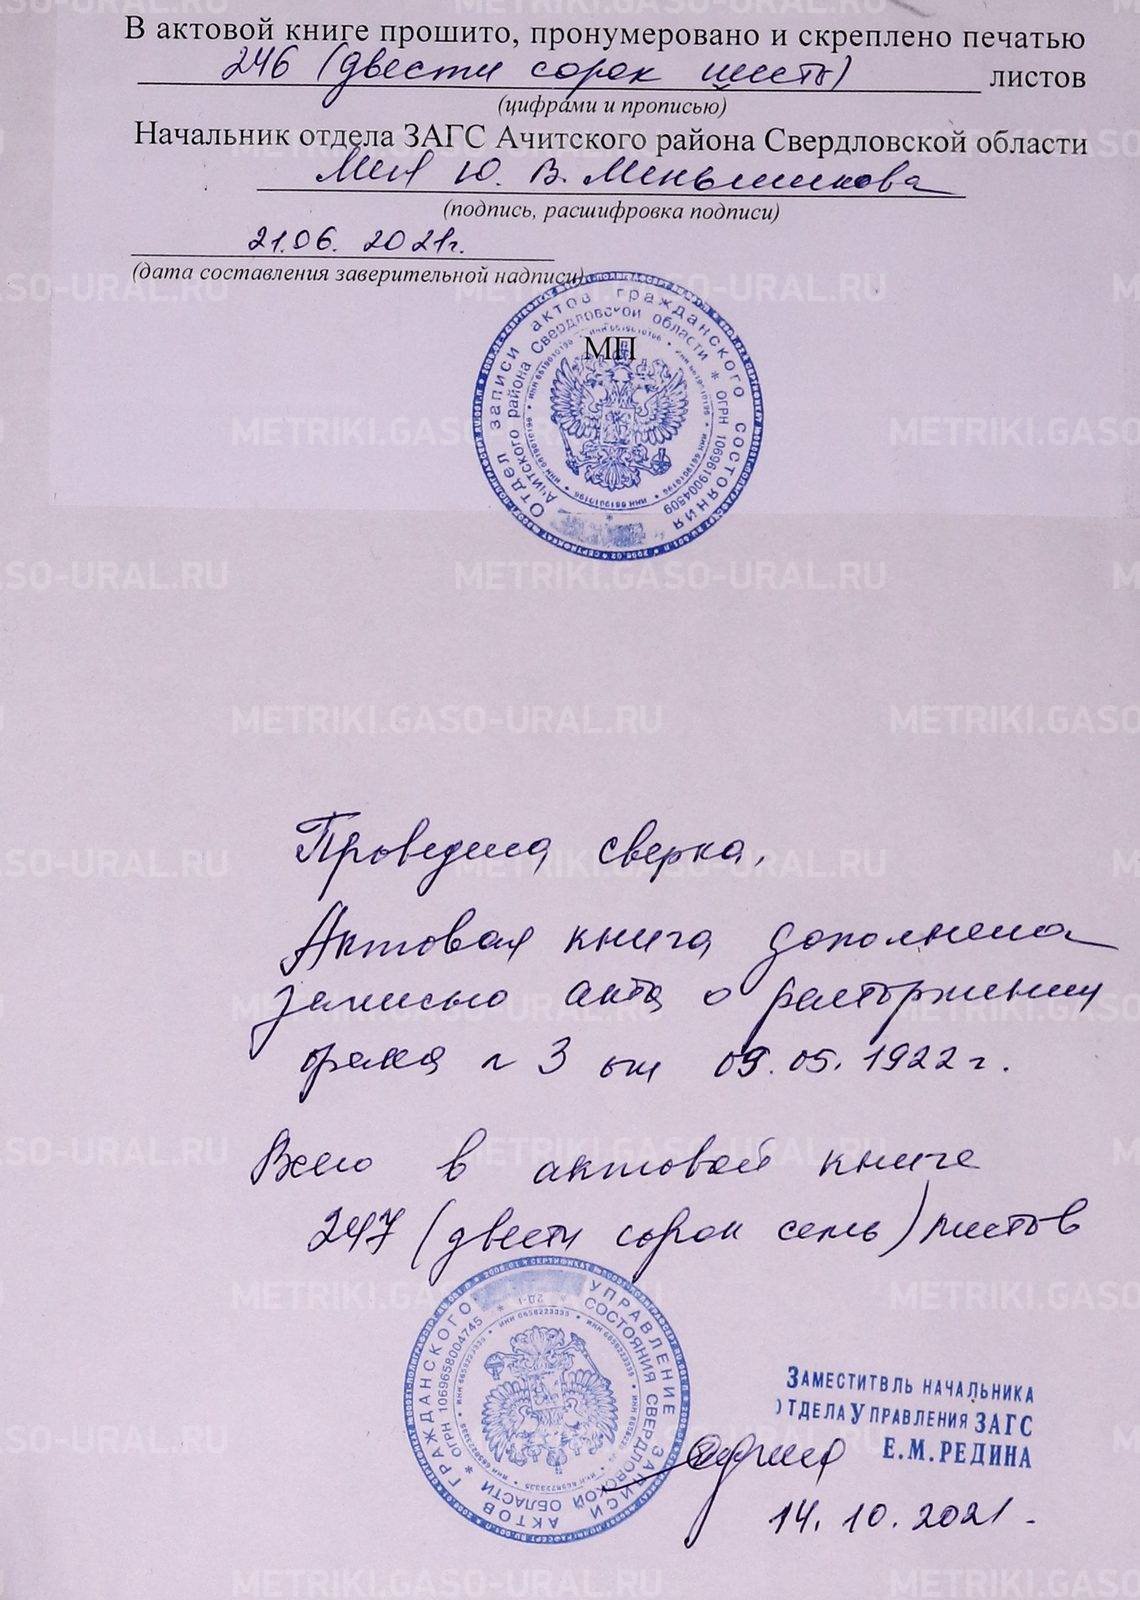 В актовой книге прошито, пронумеровано и скреплено печатью
246 (двести сорок шесть) листов
(цифрами и прописью)
Начальник отдела ЗАГС Ачитского района Свердловской области
Ю. В. Меньшикова
(подпись, расшифровка подписи)
21.06. 2021г.
(дата составления заверительной надписи)
МП
Отдел записи актов гражданского состояния
Ачитского района Свердловской области * ОГРН 1069619004509
METRIKI.GASO-URAL.RU
Проведена сверка.
Актовая книга дополнена
записью акта о расторжении
брака № 3 от 09.05.1922г.
Всего в актовой книге
247 (двести сорок семь) листов
УПРАВЛЕНИЕ ЗАПИСИ АКТОВ ГРАЖДАНСКОГО
СОСТОЯНИЯ СВЕРДЛОВСКОЙ ОБЛАСТИ * ОГРН 1069658004745
ЗАМЕСТИТВЛЬ НАЧАЛЬНИКА
ОТДЕЛА УПРАВЛЕНИЯ ЗАГС
Е.М.РЕДИНА
14.10.2021.